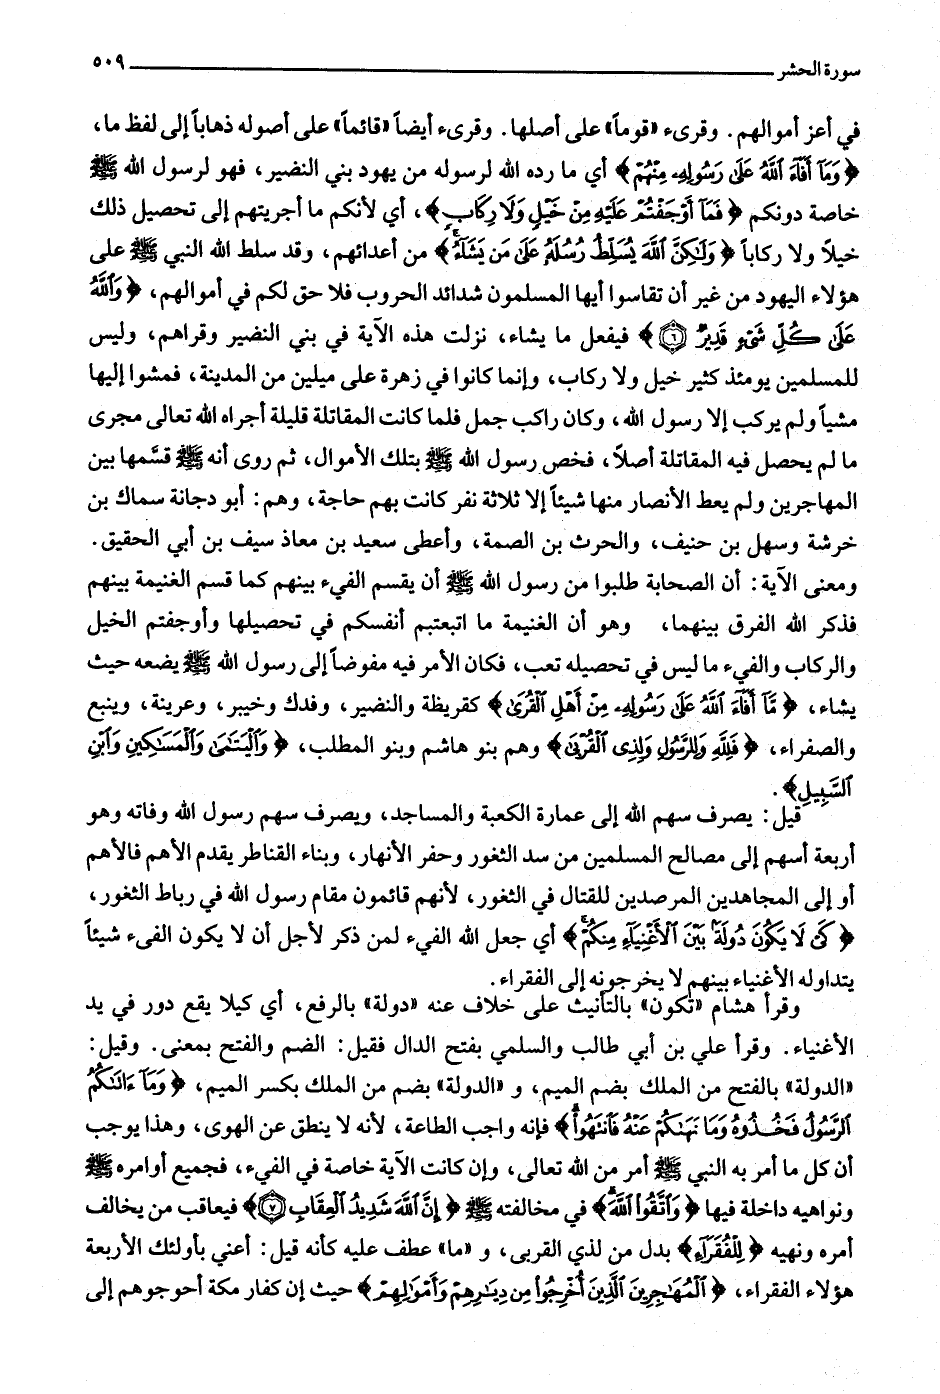 سورة الحشر ٥٠٩
في أعز أموالهم. وقرىء «قوماً» على أصلها. وقرىء أيضاً «قائماً» على أصوله ذهاباً إلى لفظ ما،
﴿وَمَآ أَفَآءَ ٱللَّهُ عَلَىٰ رَسُولِهِۦ مِنْهُمْ﴾ أي ما رده الله لرسوله من يهود بني النضير، فهو لرسول الله ﷺ
خاصة دونكم ﴿فَمَآ أَوْجَفْتُمْ عَلَيْهِ مِنْ خَيْلٍ وَلَا رِكَابٍ﴾، أي لأنكم ما أجريتهم إلى تحصيل ذلك
خيلاً ولا ركاباً ﴿وَلَٰكِنَّ ٱللَّهَ يُسَلِّطُ رُسُلَهُۥ عَلَىٰ مَن يَشَآءُ﴾ من أعدائهم، وقد سلط الله النبي ﷺ على
هؤلاء اليهود من غير أن تقاسوا أيها المسلمون شدائد الحروب فلا حق لكم في أموالهم، ﴿وَٱللَّهُ
عَلَىٰ كُلِّ شَىْءٍ قَدِيرٌ ٦﴾ فيفعل ما يشاء، نزلت هذه الآية في بني النضير وقراهم، وليس
للمسلمين يومئذ كثير خيل ولا ركاب، وإنما كانوا في زهرة على ميلين من المدينة، فمشوا إليها
مشياً ولم يركب إلا رسول الله، وكان راكب جمل فلما كانت المقاتلة قليلة أجراه الله تعالى مجرى
ما لم يحصل فيه المقاتلة أصلاً، فخص رسول الله ﷺ بتلك الأموال، ثم روى أنه ﷺ قسَّمها بين
المهاجرين ولم يعط الأنصار منها شيئاً إلا ثلاثة نفر كانت بهم حاجة، وهم: أبو دجانة سماك بن
خرشة وسهل بن حنيف، والحرث بن الصمة، وأعطى سعيد بن معاذ سيف بن أبي الحقيق.
ومعنى الآية: أن الصحابة طلبوا من رسول الله ﷺ أن يقسم الفيء بينهم كما قسم الغنيمة بينهم
فذكر الله الفرق بينهما، وهو أن الغنيمة ما اتبعتبم أنفسكم في تحصيلها وأوجفتم الخيل
والركاب والفيء ما ليس في تحصيله تعب، فكان الأمر فيه مفوضاً إلى رسول الله ﷺ يضعه حيث
يشاء، ﴿مَّآ أَفَآءَ ٱللَّهُ عَلَىٰ رَسُولِهِۦ مِنْ أَهْلِ ٱلْقُرَىٰ﴾ كقريظة والنضير، وفدك وخيبر، وعرينة، وينبع
والصفراء، ﴿فَلِلَّهِ وَلِلرَّسُولِ وَلِذِى ٱلْقُرْبَىٰ﴾ وهم بنو هاشم وبنو المطلب، ﴿وَٱلْيَتَٰمَىٰ وَٱلْمَسَٰكِينِ وَٱبْنِ
ٱلسَّبِيلِ﴾.
قيل: يصرف سهم الله إلى عمارة الكعبة والمساجد، ويصرف سهم رسول الله وفاته وهو
أربعة أسهم إلى مصالح المسلمين من سد الثغور وحفر الأنهار، وبناء القناطر يقدم الأهم فالأهم
أو إلى المجاهدين المرصدين للقتال في الثغور، لأنهم قائمون مقام رسول الله في رباط الثغور،
﴿كَىْ لَا يَكُونَ دُولَةًۢ بَيْنَ ٱلْأَغْنِيَآءِ مِنكُمْ﴾ أي جعل الله الفيء لمن ذكر لأجل أن لا يكون الفيء شيئاً
يتداوله الأغنياء بينهم لا يخرجونه إلى الفقراء.
وقرأ هشام «تكون» بالتأنيث على خلاف عنه «دولة» بالرفع، أي كيلا يقع دور في يد
الأغنياء. وقرأ علي بن أبي طالب والسلمي بفتح الدال فقيل: الضم والفتح بمعنى. وقيل:
«الدولة» بالفتح من الملك بضم الميم، و «الدولة» بضم من الملك بكسر الميم، ﴿وَمَآ ءَاتَىٰكُمُ
ٱلرَّسُولُ فَخُذُوهُ وَمَا نَهَىٰكُمْ عَنْهُ فَٱنتَهُوا۟﴾ فإنه واجب الطاعة، لأنه لا ينطق عن الهوى، وهذا يوجب
أن كل ما أمر به النبي ﷺ أمر من الله تعالى، وإن كانت الآية خاصة في الفيء، فجميع أوامره ﷺ
ونواهيه داخلة فيها ﴿وَٱتَّقُوا۟ ٱللَّهَ﴾ في مخالفته ﷺ ﴿إِنَّ ٱللَّهَ شَدِيدُ ٱلْعِقَابِ ٧﴾ فيعاقب من يخالف
أمره ونهيه ﴿لِلْفُقَرَآءِ﴾ بدل من لذي القربى، و «ما» عطف عليه كأنه قيل: أعني بأولئك الأربعة
هؤلاء الفقراء، ﴿ٱلْمُهَٰجِرِينَ ٱلَّذِينَ أُخْرِجُوا۟ مِن دِيَٰرِهِمْ وَأَمْوَٰلِهِمْ﴾ حيث إن كفار مكة أحوجوهم إلى